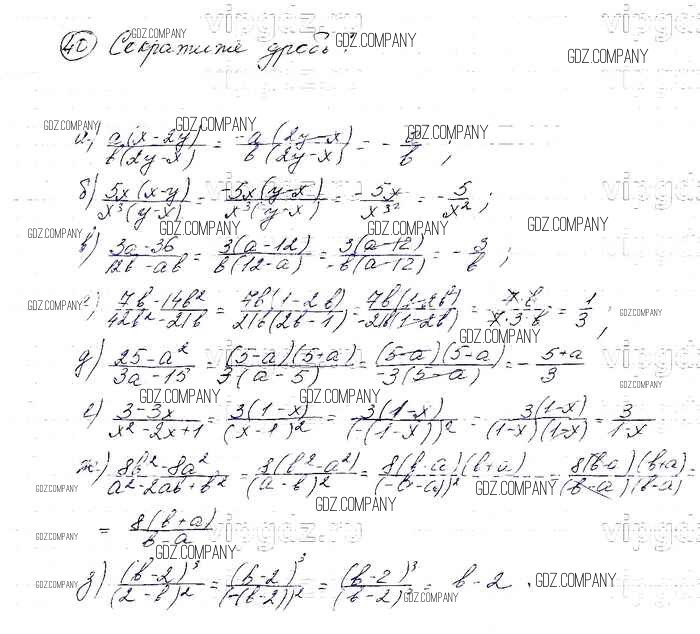 40) Сократите дробь:
а) a(x-2y)/b(2y-x) = -a(2y-x)/b(2y-x) = -a/b ;
б) 5x(x-y)/x³(y-x) = -5x(y-x)/x³(y-x) = -5x/x³² = -5/x² ;
в) 3a-36/12b-ab = 3(a-12)/b(12-a) = 3(a-12)/-b(a-12) = -3/b ;
г) 7b-14b²/42b²-21b = 7b(1-2b)/21b(2b-1) = 7b(1-2b)/-21b(1-2b) = 7·b/7·3·b = 1/3 ;
д) 25-a²/3a-15 = (5-a)(5+a)/3(a-5) = (5-a)(5-a)/-3(5-a) = -5+a/3
е) 3-3x/x²-2x+1 = 3(1-x)/(x-1)² = 3(1-x)/(-(1-x))² = 3(1-x)/(1-x)(1-x) = 3/1-x
ж) 8b²-8a²/a²-2ab+b² = 8(b²-a²)/(a-b)² = 8(b-a)(b+a)/(-(b-a))² = 8(b-a)(b+a)/(b-a)(b-a) =
= 8(b+a)/b-a
з) (b-2)³/(2-b)² = (b-2)³/(-(b-2))² = (b-2)³/(b-2)² = b-2 .
GDZ.COMPANY
vipgdz.ru